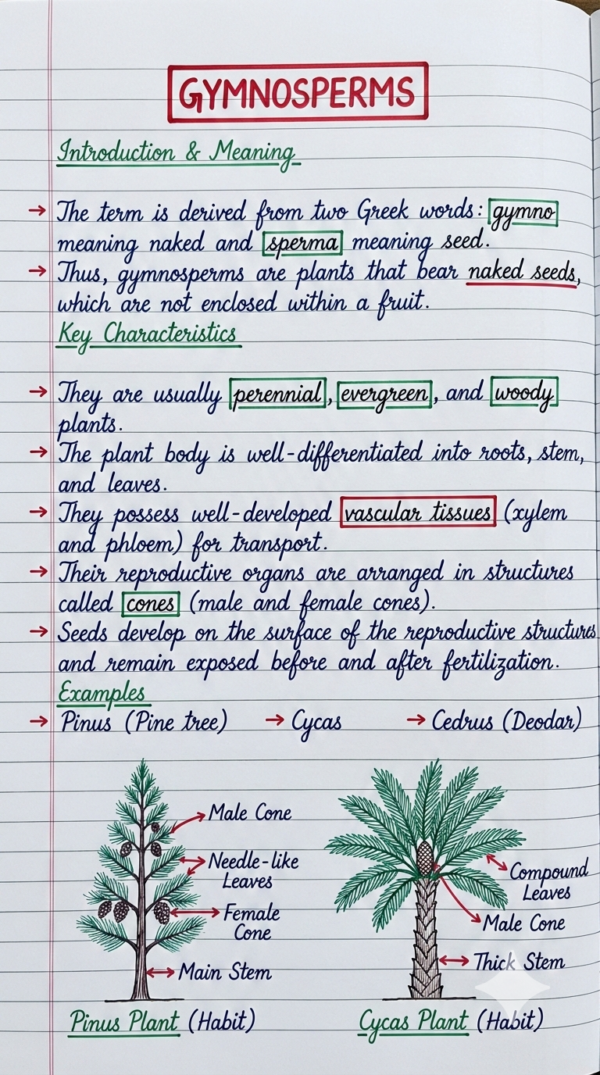 GYMNOSPERMS
Introduction & Meaning
→ The term is derived from two Greek words: gymno
meaning naked and sperma meaning seed.
→ Thus, gymnosperms are plants that bear naked seeds,
which are not enclosed within a fruit.
Key Characteristics
→ They are usually perennial, evergreen, and woody
plants.
→ The plant body is well-differentiated into roots, stem,
and leaves.
→ They possess well-developed vascular tissues (xylem
and phloem) for transport.
→ Their reproductive organs are arranged in structures
called cones (male and female cones).
→ Seeds develop on the surface of the reproductive structures
and remain exposed before and after fertilization.
Examples
→ Pinus (Pine tree) → Cycas → Cedrus (Deodar)
Male Cone
Needle-like
Leaves
Female
Cone
Main Stem
Pinus Plant (Habit)
Compound
Leaves
Male Cone
Thick Stem
Cycas Plant (Habit)